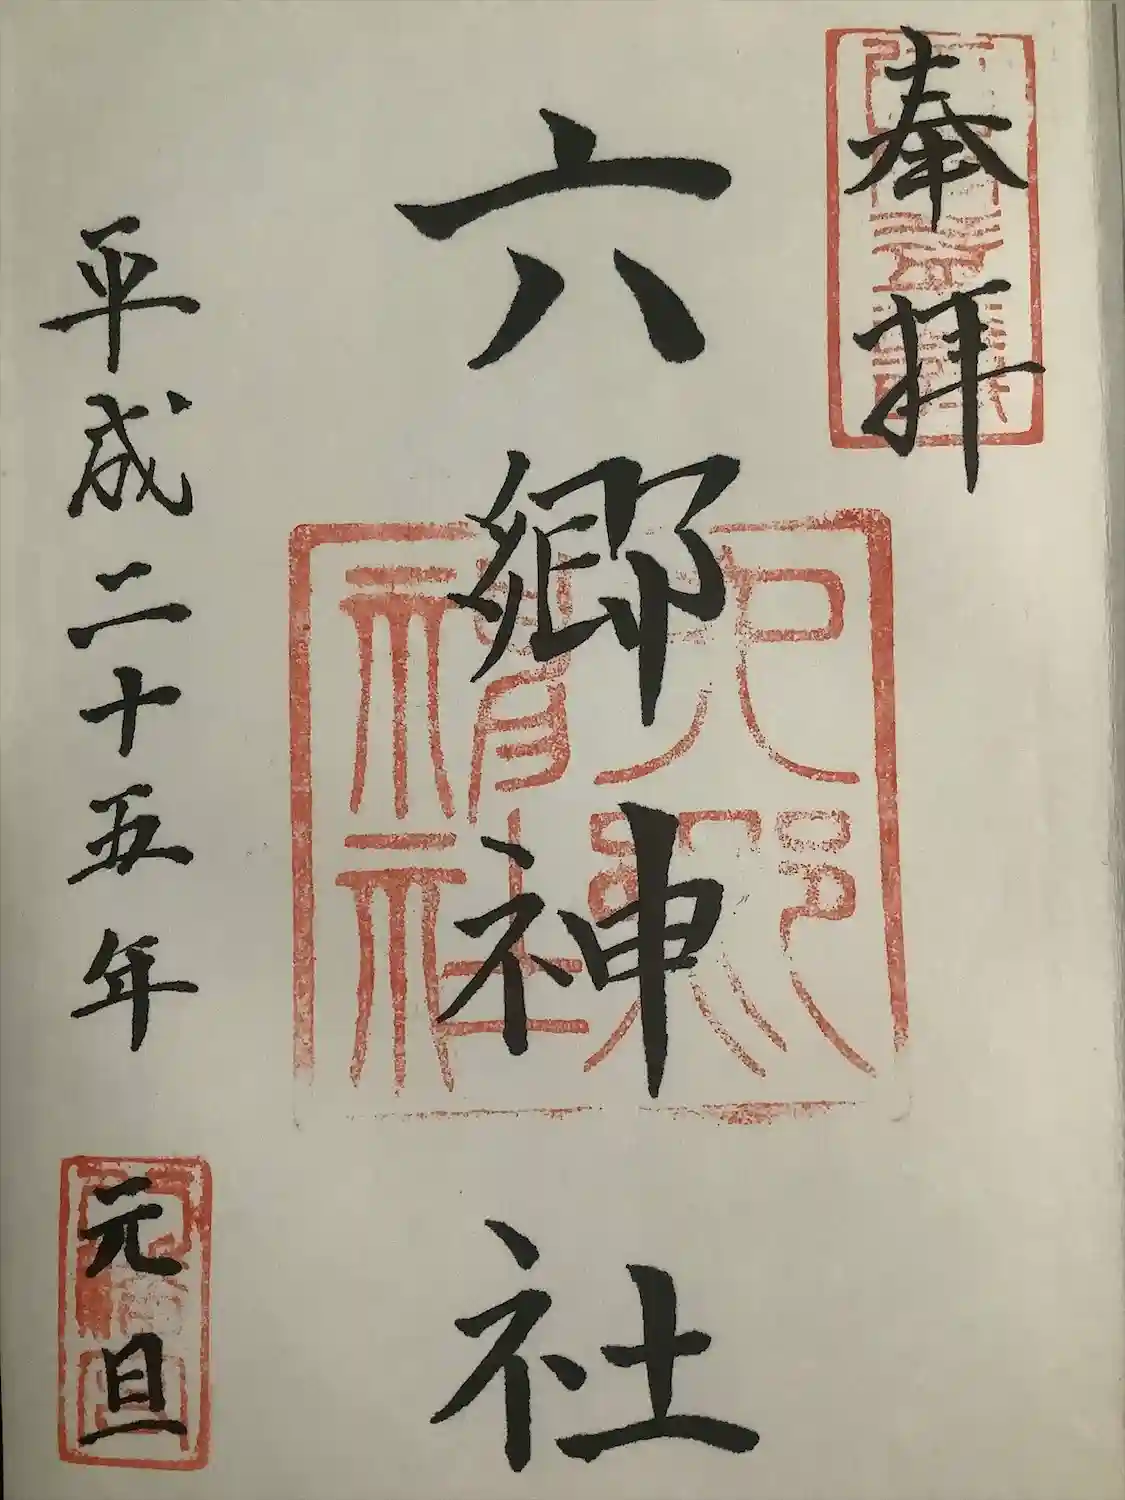 奉拝
六郷神社
平成二十五年 元旦